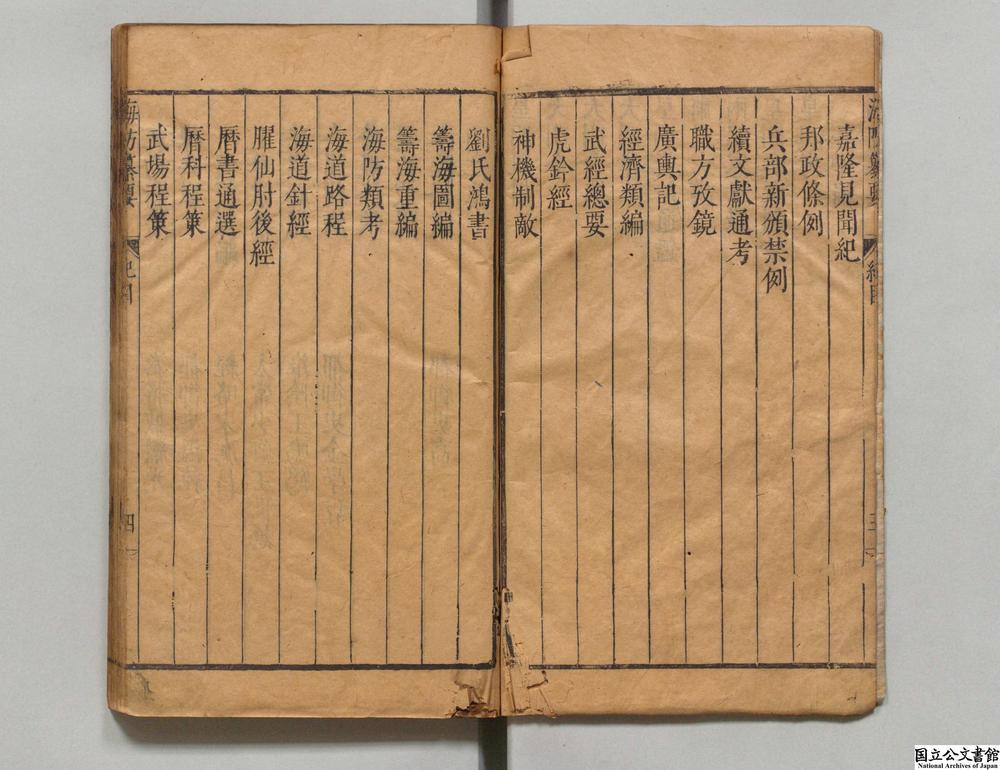 嘉隆見聞紀
邦政條例
兵部新頒禁例
續文獻通考
職方攷鏡
廣輿記
經濟類編
武經總要
虎鈐經
神機制敵
劉氏鴻書
籌海圖編
籌海重編
海防類考
海道路程
海道針經
臞仙肘後經
曆書通選
曆科程策
武場程策
海防纂要
四
国立公文書館
National Archives of Japan